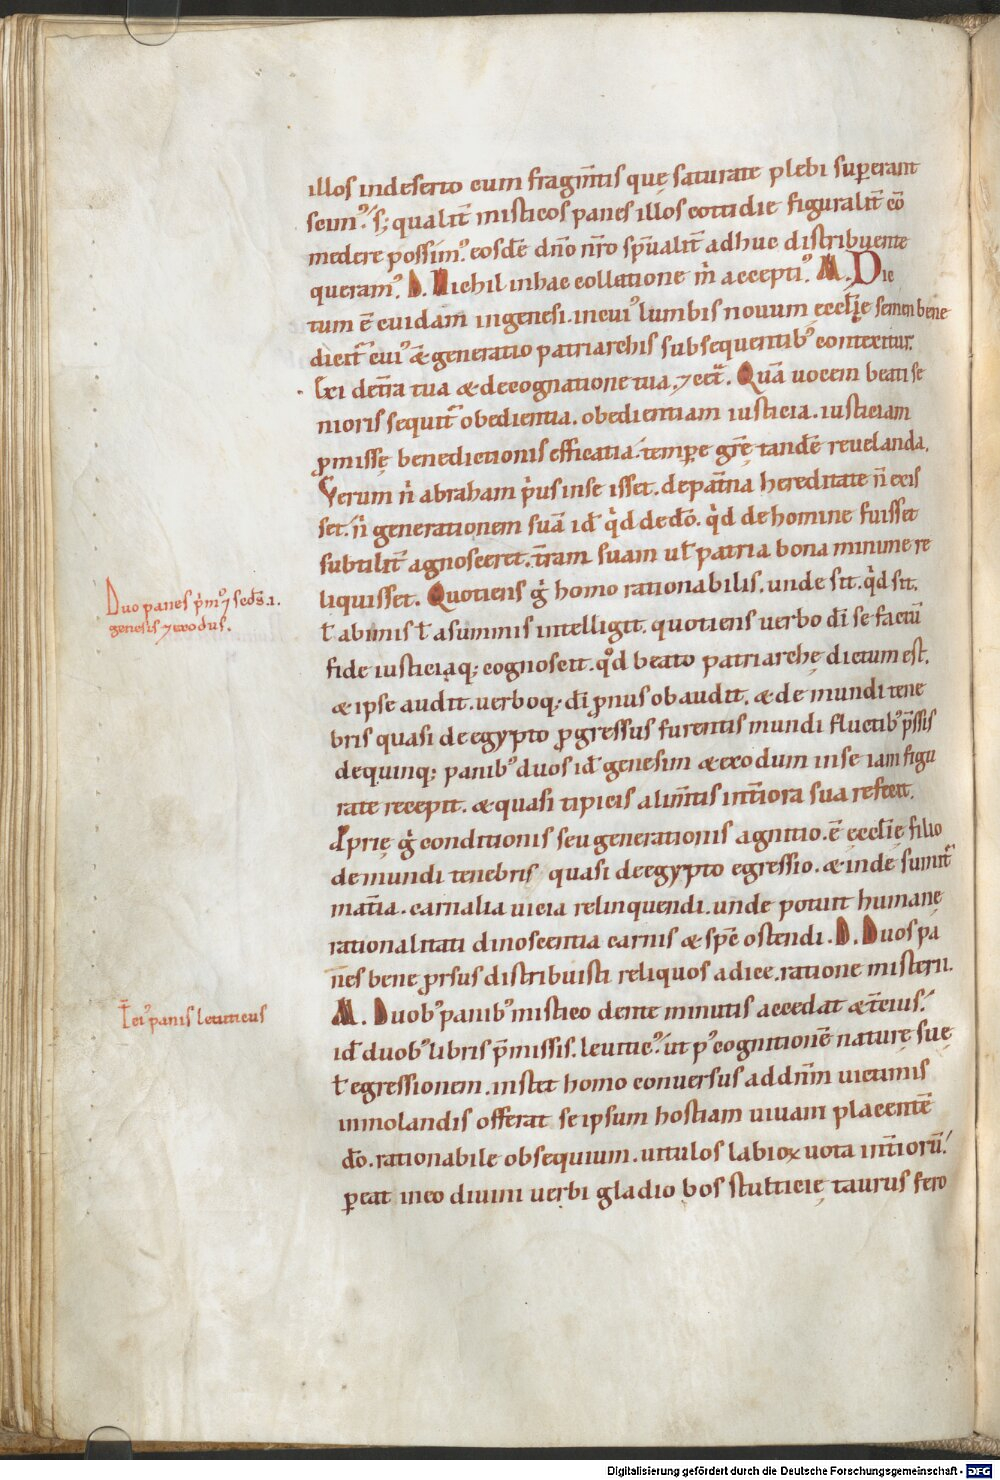 illos indeserto cum fragm̄tis quę saturate plebi superant
scim᷒. s; qualit̄ misticos panes illos cottidie figuralit̄ cō
medere possim᷒. eosdē dn̄o nr̄o sp̄ualit̄ adhuc distribuente
queram᷒. D. Nichil inhac collatione m̄ accepti᷒. M. Dic
tum ē cuidam ingenesi. incui᷒ lumbis novum eccl̄ię semen bene
dicit᷒ cui᷒ & generatio patriarchis subsequentib᷒ contexitur.
Exi det̄ra tua & decognatione tua. ⁊ cet̄. Quā vocem beati se
nioris sequit᷒ obedientia. obedientiam iusticia. iusticiam
ꝓmissę benedictionis efficatia. tempore gr̄ę tandē revelanda.
Verum n̄ abraham p̍us inse isset. depat̄na hereditate n̄ exis
set. n̄ generationem suā id̄ q̍d dedō. q̍d dehomine fuisset
subtilit̄ agnosceret. t̄ram suam ul̄ patria bona minime re
liquisset. Quotiens g̍ homo rationabilis. unde sit. q̍d sit.
Duo panes p̍m᷒ ⁊ scds̄ .i.
genesis ⁊ exodus.
l̄ abimis l̄ asummis intelligit. quotiens verbo dī se factū
fide iusticiaq; cognoscit. qd̊ beato patriarchę dictum est.
& ipse audit. verboq; dī ꝓnus obaudit. & de mundi tene
bris quasi de egypto ꝓgressus furentis mundi fluctib᷒ p̄ssis
dequinq; panib᷒ duos id̄ genesim & exodum inse iam figu
rate recepit. & quasi tipicis alim̄tis int̄iora sua refecit.
Aprię g̍ conditionis seu generationis agnitio. ē eccl̄ię filio
demundi tenebris quasi deegypto egressio. & inde sumit᷒
mat̄ia. carnalia vicia relinquendi. unde potuit humanę
rationalitati dinoscentia carnis & spc̄ ostendi. D. Duos pa
nes bene prsus distribuisti reliquos adice. ratione misterii.
M. Duob᷒ panib᷒ mistico dente minutis accedat & t̄cius.
T̄ci᷒ panis leviticus
id̄ duob᷒ libris p̄missis. levitic᷒. ut p᷒ cognitionē naturę suę
l̄ egressionem. instet homo conversus ad dn̄m victimis
inmolandis offerat se ipsum hostiam vivam placentē
dō. rationabile obsequium. vitulos labioꝝ vota int̄iorū.
ꝑeat ineo divini verbi gladio bos stulticię taurus fero